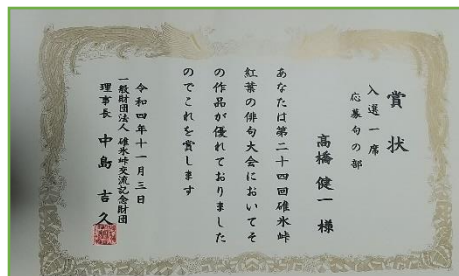 賞状
入選一席
応募句の部
高橋健一様
あなたは第二十四回碓氷峠
紅葉の俳句大会においてそ
の作品が優れておりました
のでこれを賞します
令和四年十一月三日
一般財団法人 碓氷峠交流記念財団
理事長 中島吉久